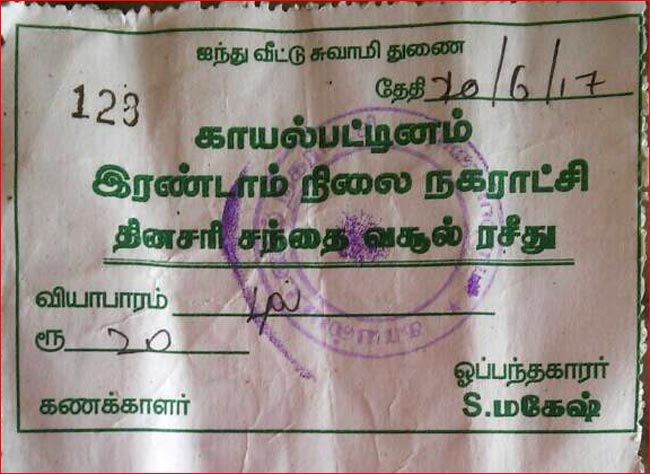 ஐந்து வீட்டு சுவாமி துணை
123
தேதி 20/6/17
காயல்பட்டினம்
இரண்டாம் நிலை நகராட்சி
தினசரி சந்தை வசூல் ரசீது
வியாபாரம்
ரூ 20
ஒப்பந்தகாரர்
கணக்காளர் S.மகேஷ்